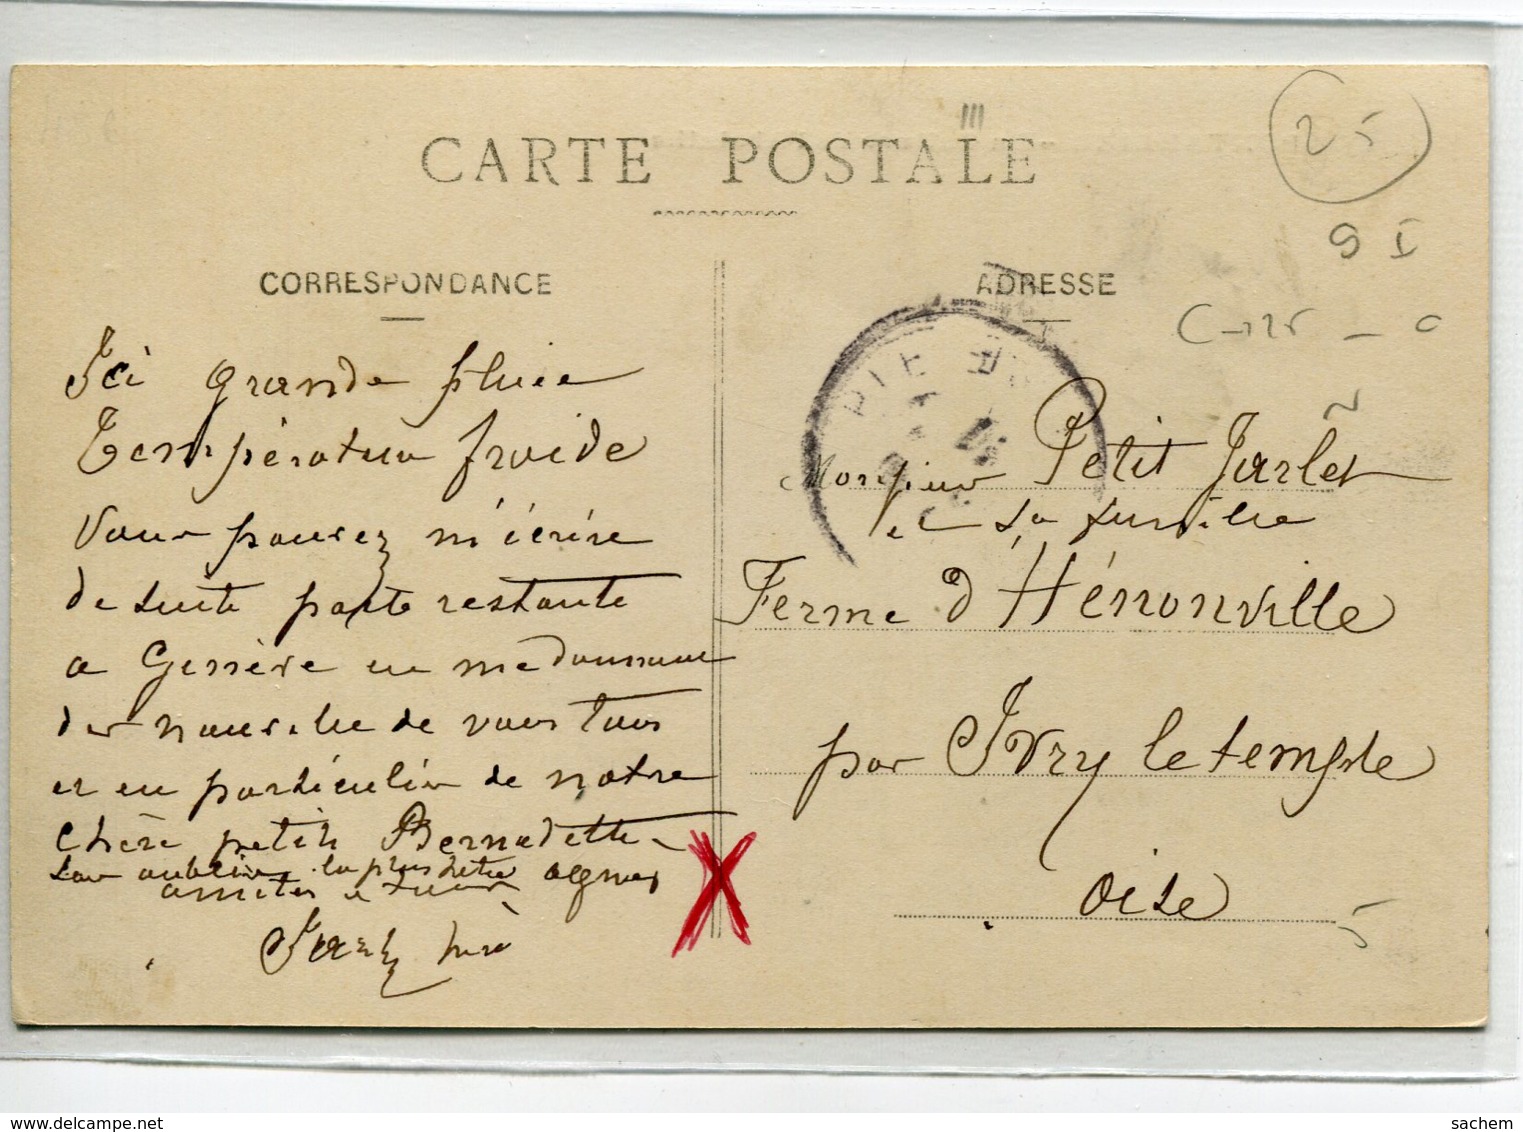 CARTE POSTALE
25
CORRESPONDANCE
ADRESSE
Ici grande pluie
Température froide
Vous pouvez m'écrire
de suite poste restante
a Genève en me donnant
des nouvelles de vous tous
et en particulier de notre
chère petite Bernadette
sans oublier la plus petite agnes
amitiés a tous
père
Monsieur Petit Jarlet
et sa famille
Ferme d'Hénonville
par Ivry le temple
oise
sachem